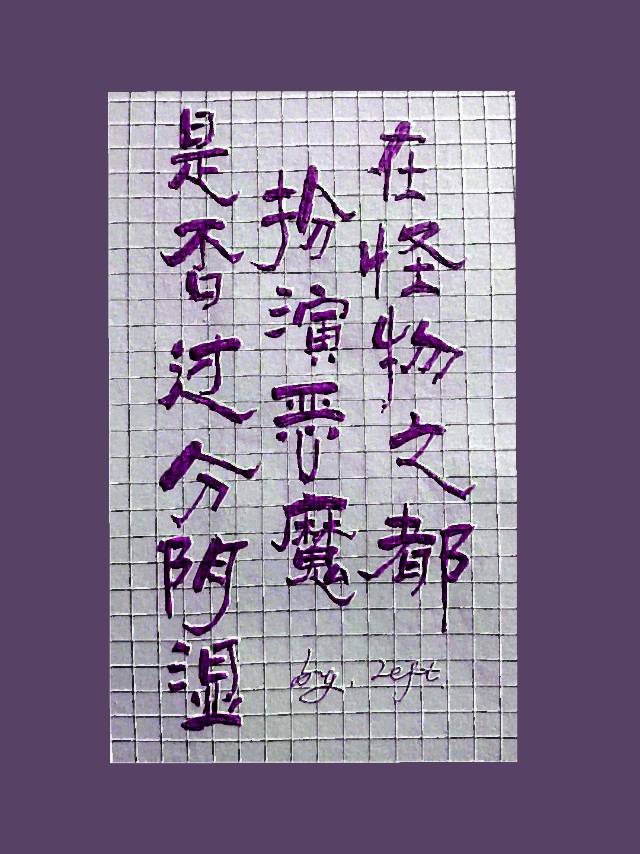 在怪物之都
扮演恶魔
是否过分阴湿
by. Left.